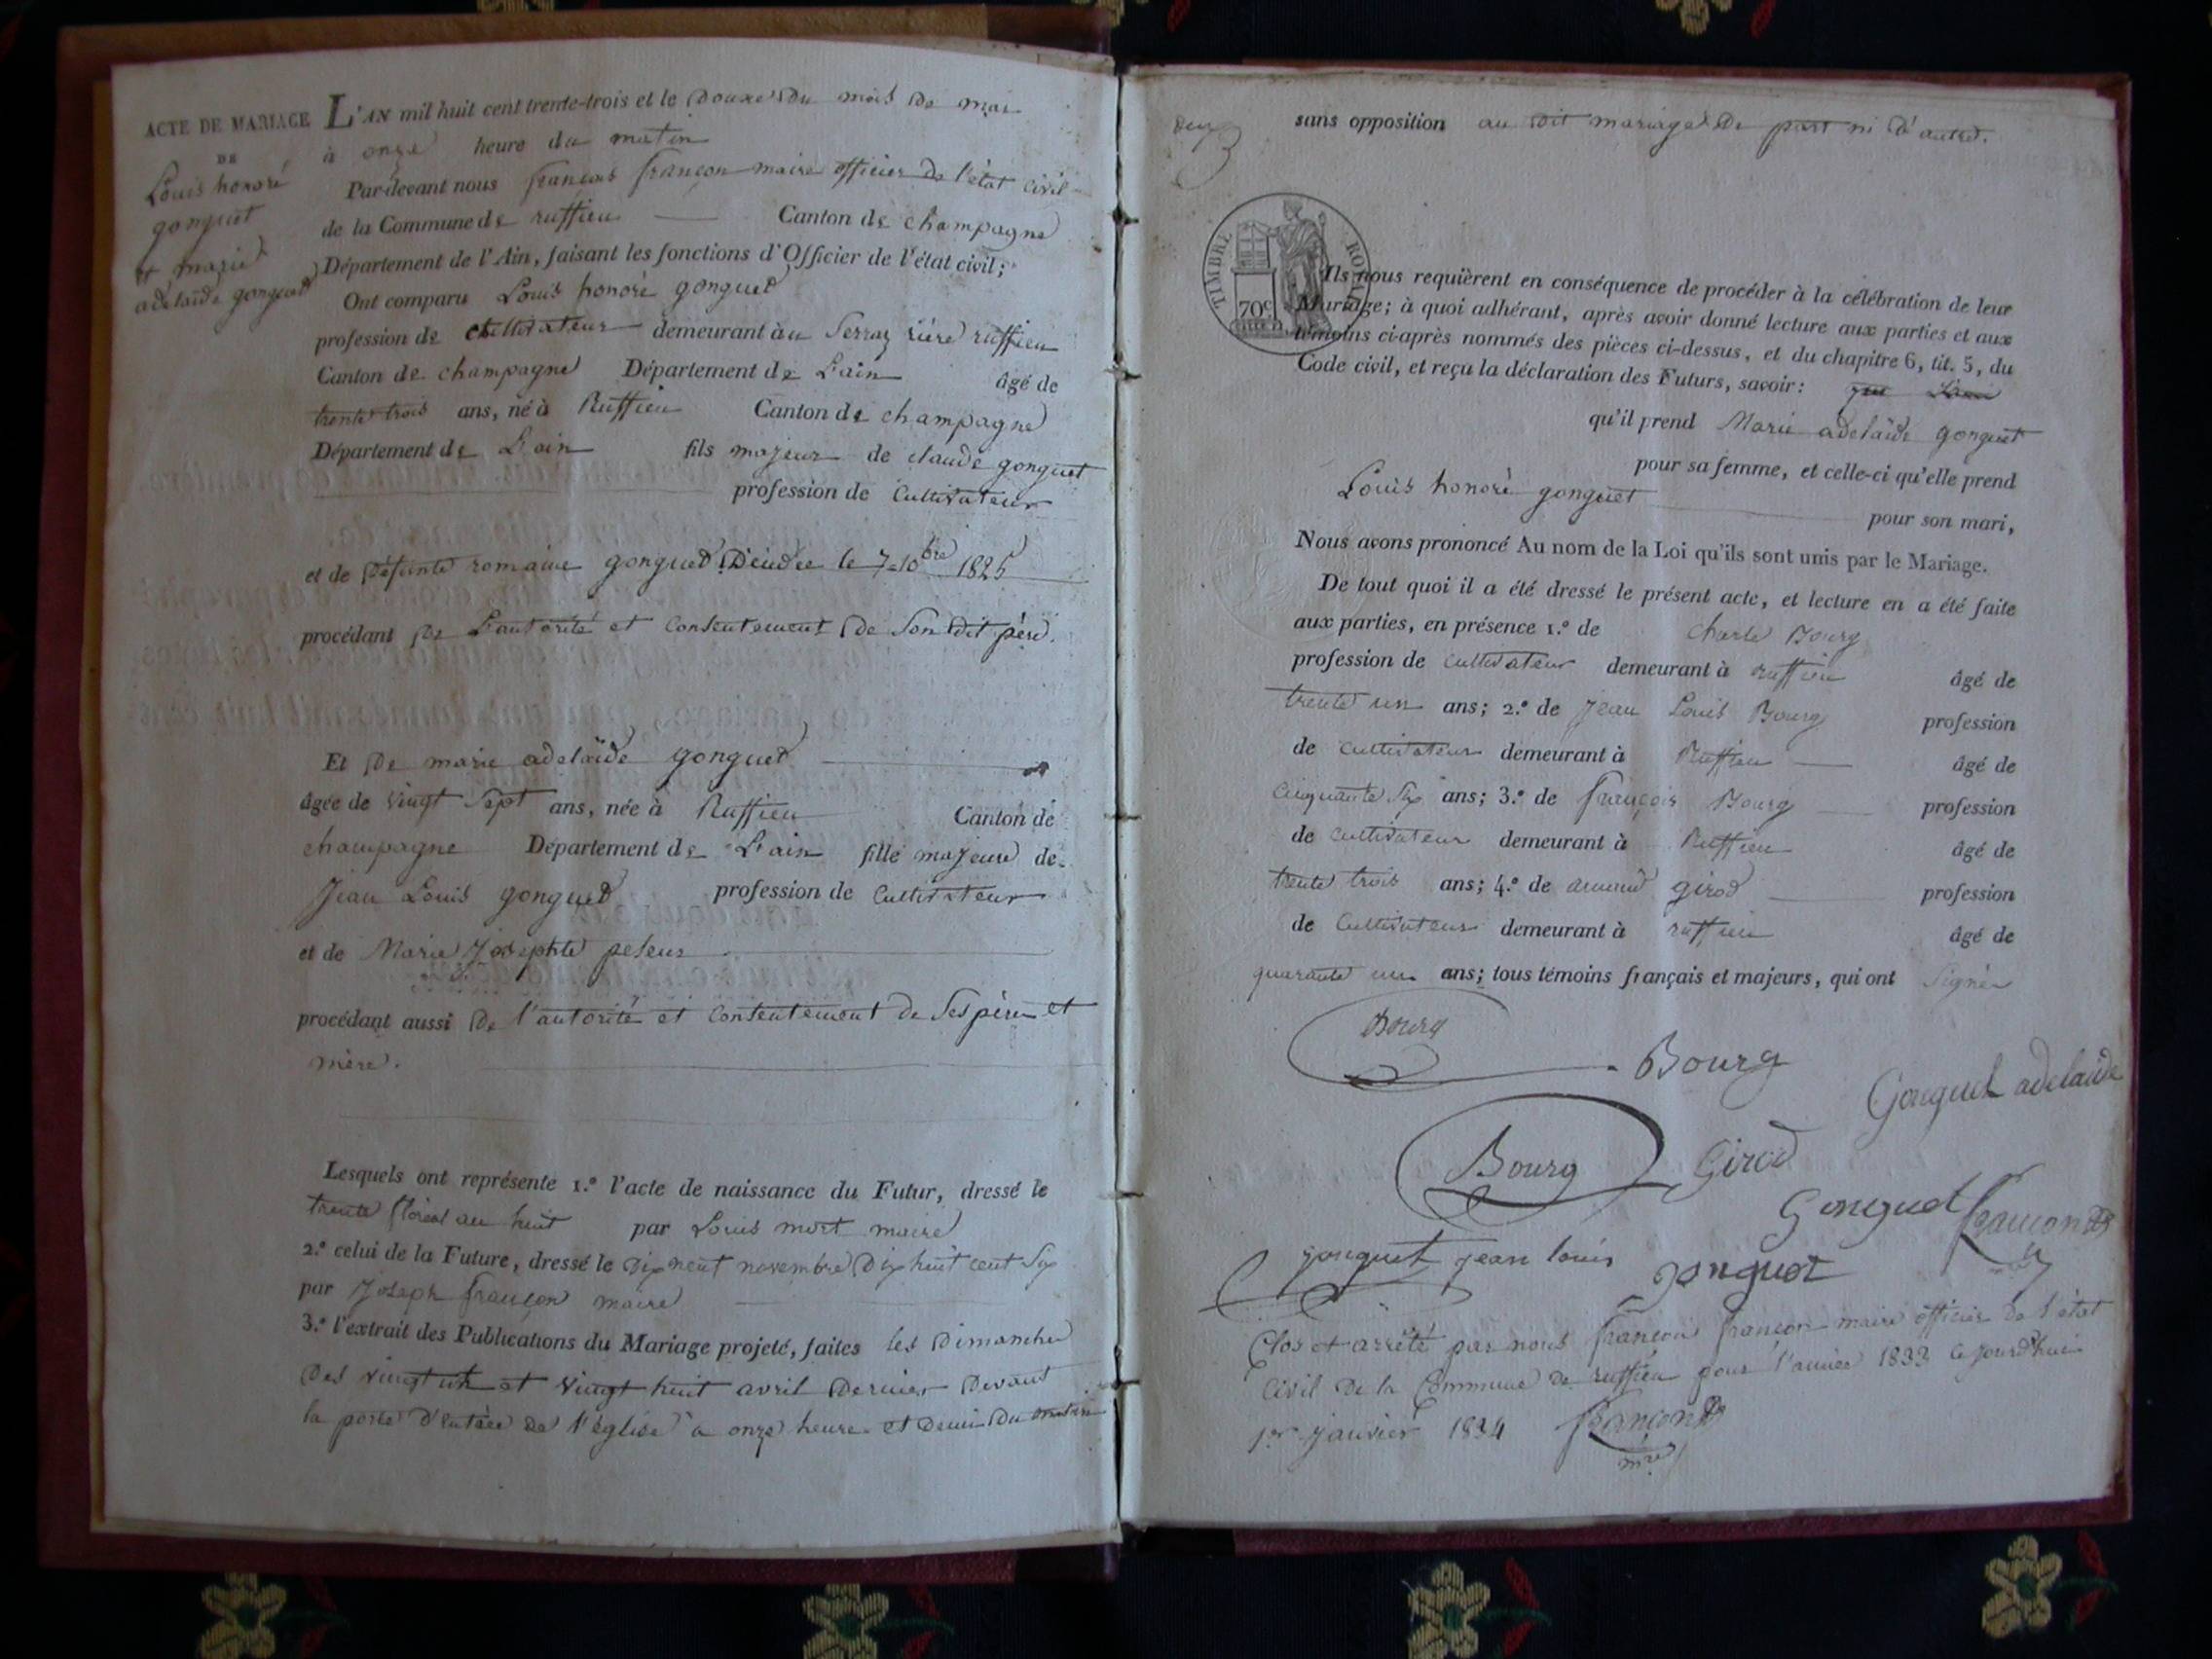 ACTE DE MARIAGE
DE
Louis honoré
gonguet
et marie
adélaïde gonguet
L'AN mil huit cent trente-trois et le douze du mois de mai
à onze heure du matin
Par-devant nous françois françon maire officier de l'état civil
de la Commune de ruffieu Canton de champagne
Département de l'Ain, faisant les fonctions d'Officier de l'état civil;
Ont comparu Louis honoré gonguet
profession de cultivateur demeurant au Serraz rière ruffieu
Canton de champagne Département de L'ain âgé de
trente trois ans, né à Ruffieu Canton de champagne
Département de L'ain fils majeur de claude gonguet
profession de Cultivateur
et de défunte romaine gonguet Décidée le 7 10bre 1825
procédant de L'autorité et Consentement de Son dit père.
Et de marie adelaïde gonguet
âgée de vingt Sept ans, née à Ruffieu Canton de
champagne Département de L'ain fille majeure de
Jean Louis gonguet profession de Cultivateur
et de Marie Josephte
procédant aussi de l'autorité et Consentement de Ses père et
mère.
Lesquels ont représenté 1.º l'acte de naissance du Futur, dressé le
trente floréal an huit par Louis mort maire
2.º celui de la Future, dressé le dix neuf novembre dix huit cent Six
par Joseph françon maire
3.º l'extrait des Publications du Mariage projeté, faites les Dimanche
des vingt un et vingt huit avril dernier devant
la porte d'entrée de l'église à onze heure et demie du matin
deux
sans opposition au dit mariage de part ni d'autre.
TIMBRE ROYAL
70c
Ils nous requièrent en conséquence de procéder à la célébration de leur
Mariage; à quoi adhérant, après avoir donné lecture aux parties et aux
témoins ci-après nommés des pièces ci-dessus, et du chapitre 6, tit. 5, du
Code civil, et reçu la déclaration des Futurs, savoir:
qu'il prend Marie adelaïde gonguet
pour sa femme, et celle-ci qu'elle prend
Louis honoré gonguet
pour son mari,
Nous avons prononcé Au nom de la Loi qu'ils sont unis par le Mariage.
De tout quoi il a été dressé le présent acte, et lecture en a été faite
aux parties, en présence 1.º de Charle Bourg
profession de cultivateur demeurant à ruffieu âgé de
trente un ans; 2.º de Jean Louis Bourg profession
de Cultivateur demeurant à Ruffieu âgé de
Cinquante Six ans; 3.º de françois Bourg profession
de Cultivateur demeurant à Ruffieu âgé de
trente trois ans; 4.º de girod profession
de Cultivateur demeurant à ruffieu âgé de
quarante un ans; tous témoins français et majeurs, qui ont Signé
Bourg
Bourg
Gonguet adelaide
Bourg
Girod
Gonguet
françon
gonguet jean louis
gonguet
Clos et arrêté par nous françois françon maire officier de l'état
Civil de la Commune de ruffieu pour l'année 1833 Ce jourd'hui
1er janvier 1834 françon
mre